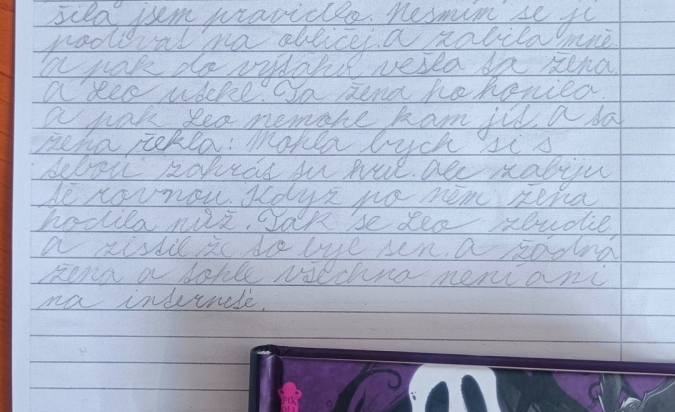 šila jsem pravidlo. Nesmím se jí
podívat na obličej. A zabila mně.
a pak do výtahu vešla ta žena
a Leo utekl. Ta žena ho honila.
a pak Leo nemohl kam jít. a ta
žena řekla: Mohla bych si s
tebou zahrát tu hru. Ale zabiju
tě rovnou. Když po něm žena
hodila nůž. Tak se Leo zbudil
a zistil že to byl sen. a žádná
žena a tohle všechno není ani
na internetě.